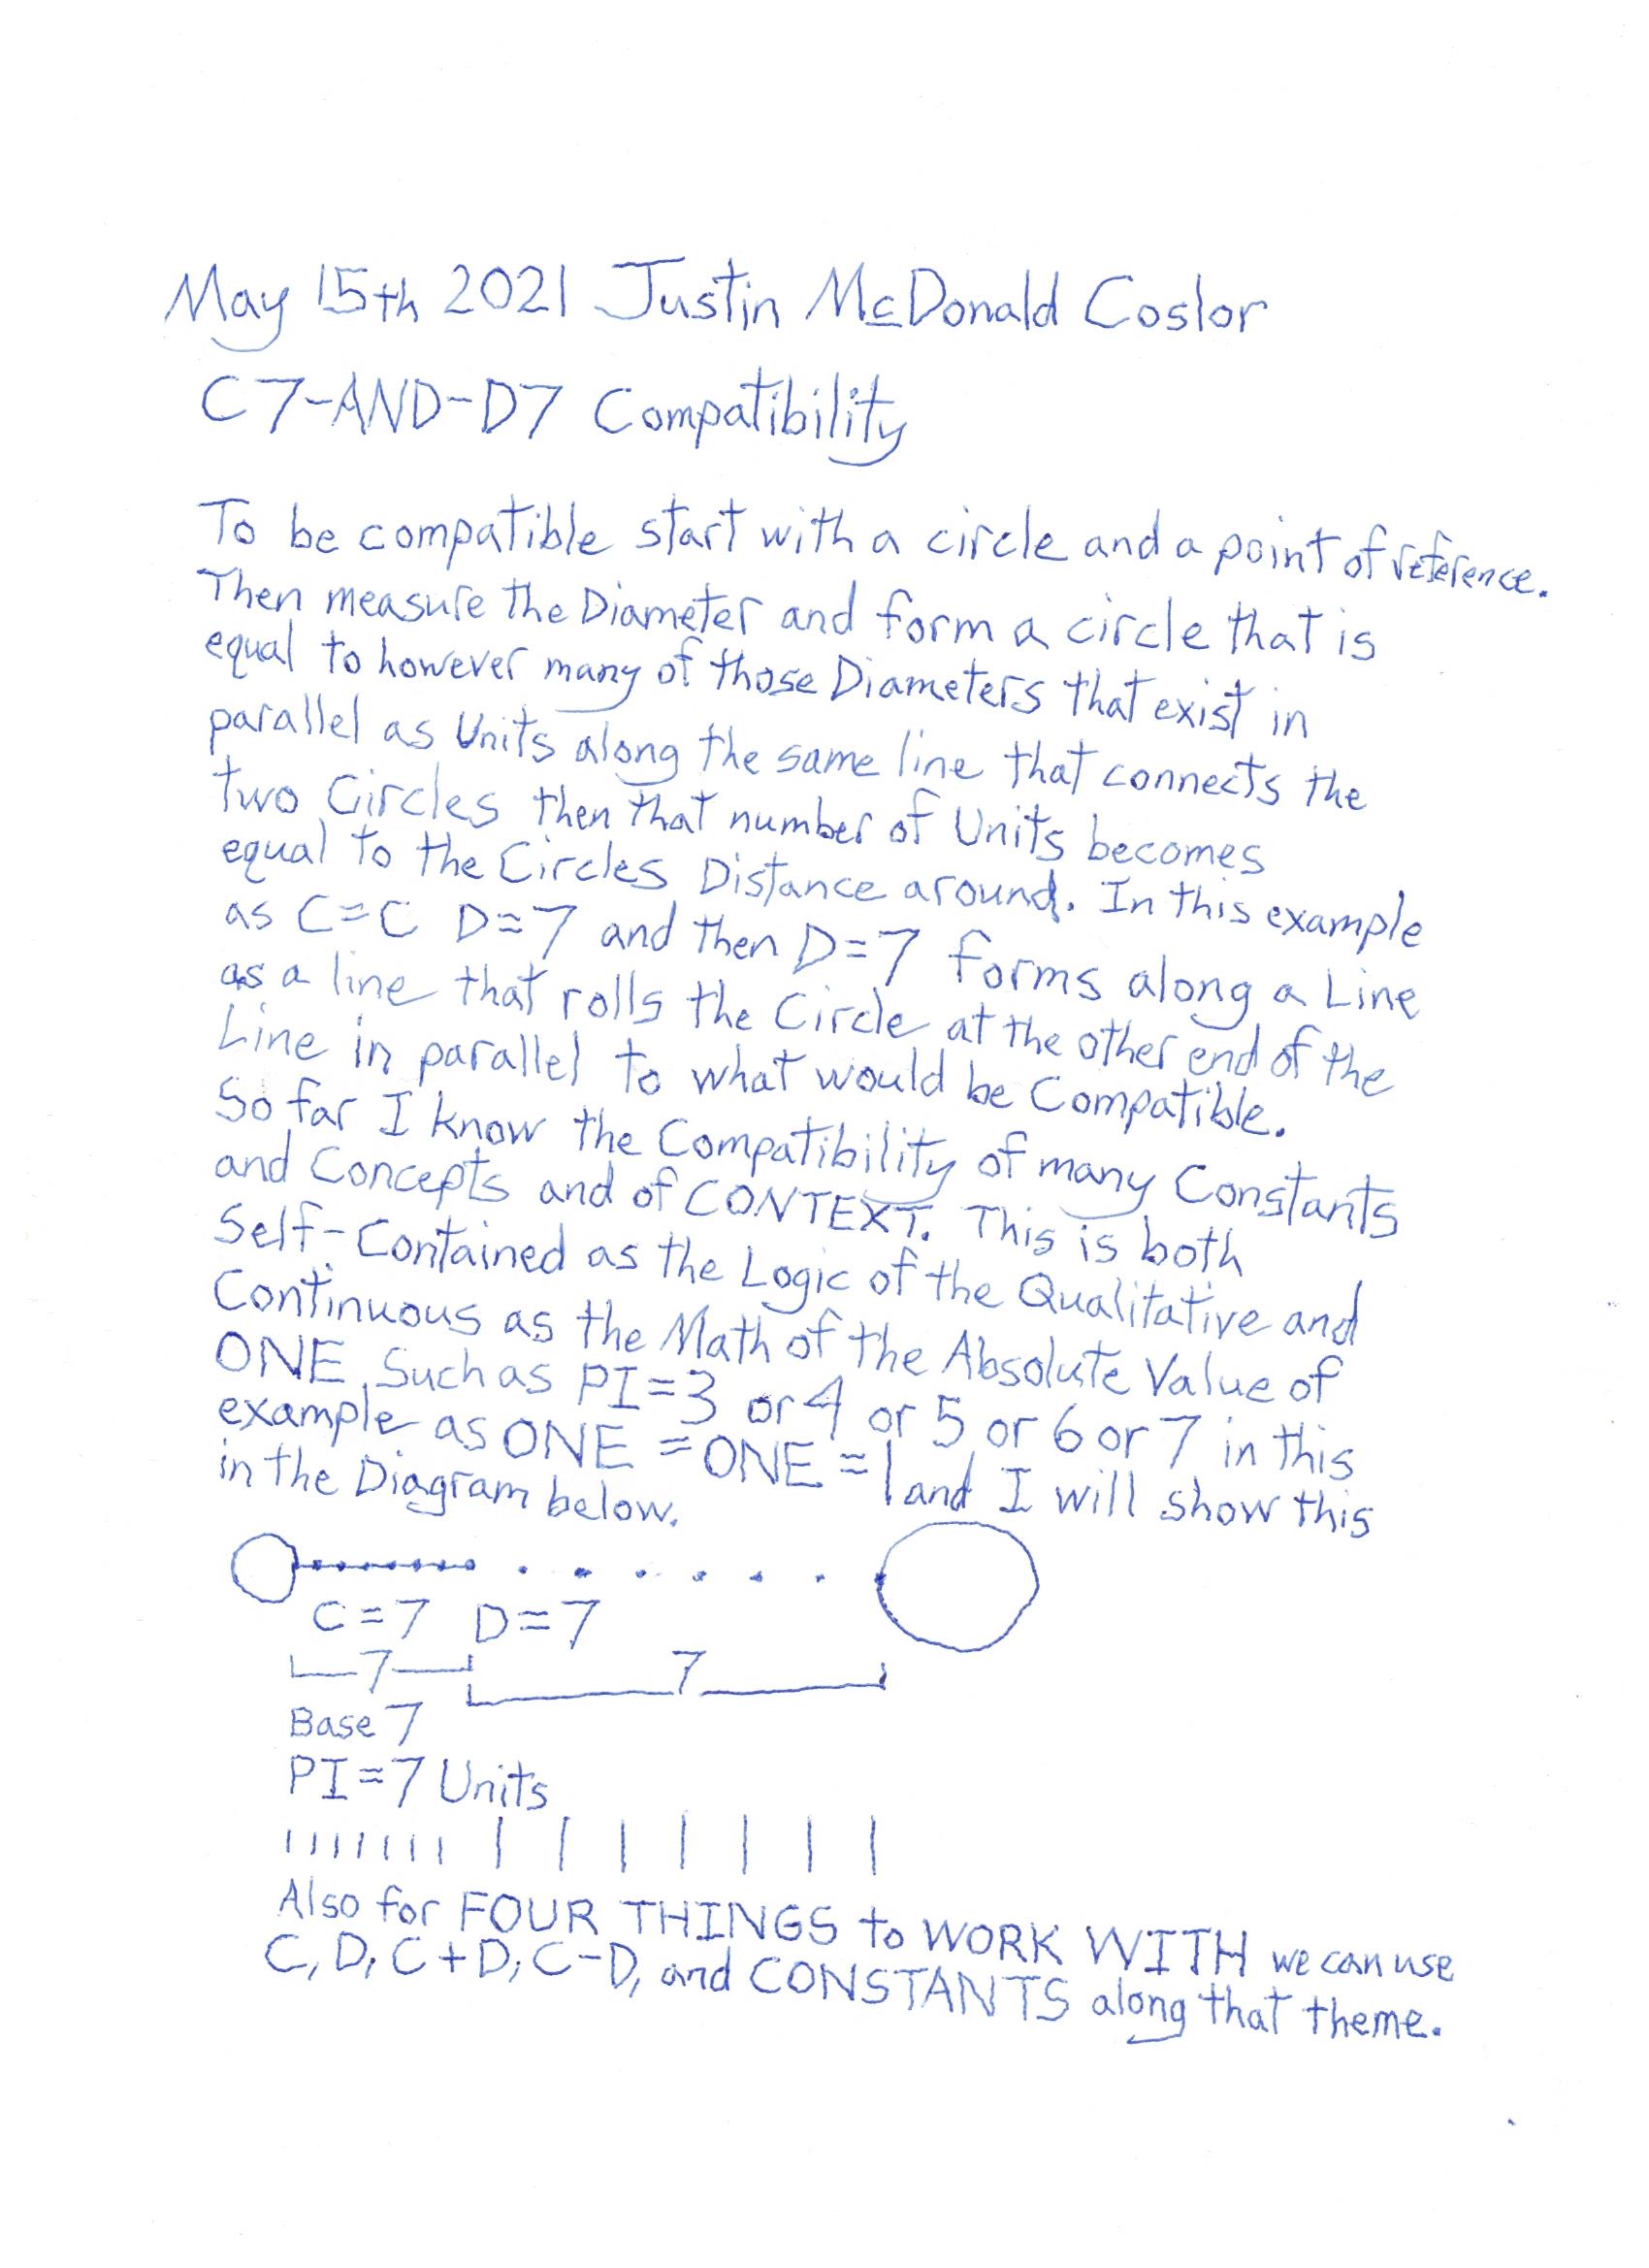 May 15th 2021 Justin McDonald Coslor
C7-AND-D7 Compatibility
To be compatible start with a circle and a point of reference.
Then measure the Diameter and form a circle that is
equal to however many of those Diameters that exist in
parallel as Units along the same line that connects the
two Circles then that number of Units becomes
equal to the Circles Distance around. In this example
as C=C D=7 and then D=7 forms along a Line
as a line that rolls the Circle at the other end of the
Line in parallel to what would be Compatible.
So far I know the Compatibility of many Constants
and Concepts and of CONTEXT. This is both
Self-Contained as the Logic of the Qualitative and
Continuous as the Math of the Absolute Value of
ONE. Such as PI=3 or 4 or 5 or 6 or 7 in this
example as ONE = ONE = 1 and I will show this
in the Diagram below.
C=7 D=7
7 7
Base 7
PI=7 Units
Also for FOUR THINGS to WORK WITH we can use
C, D, C+D, C-D, and CONSTANTS along that theme.